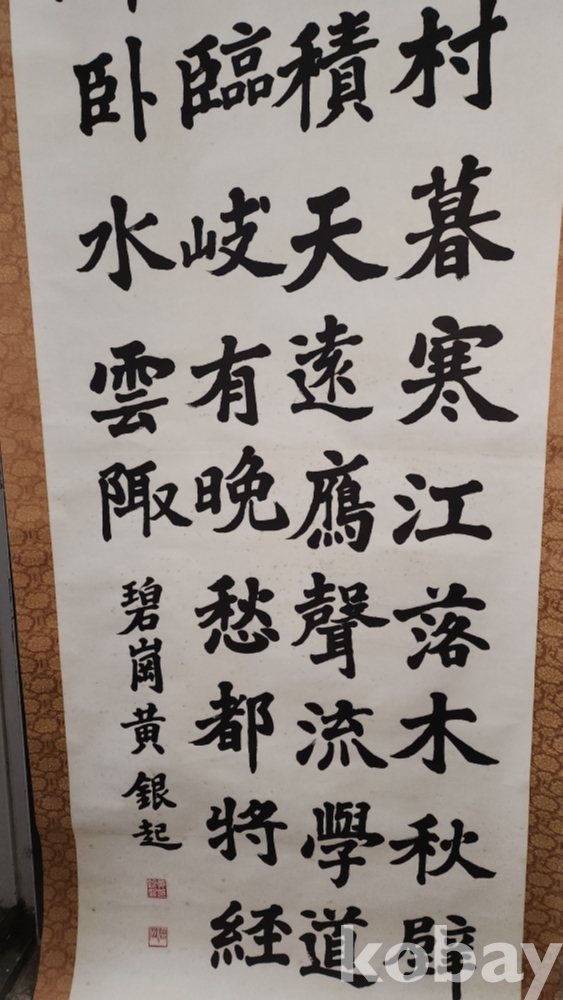 村暮寒江落木秋壁
積天遠鴈聲流學道
臨岐有晚愁都將經
臥水雲陬
碧崗黄銀起
kobay